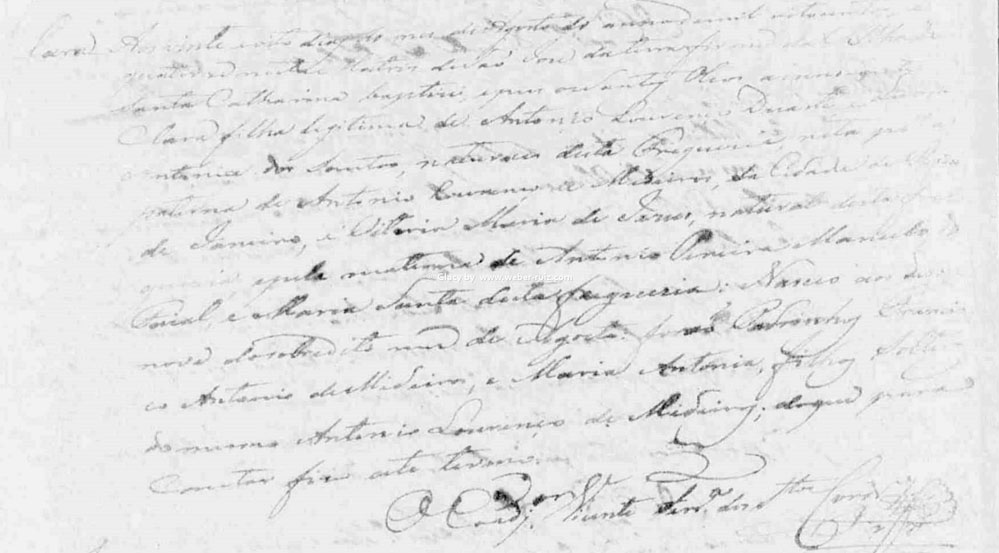 Clara Aos vinte e oito dias do mes de Agosto do anno de mil oitocentos e
nesta Matriz de São José da terra firme da Ilha de
Santa Catharina baptizei, e puz os Santos Oleos a innocente
Clara filha legitima de Antonio Lourenço Duarte e
Antonia dos Santos, naturaes desta Freguezia, neta por
paterna de Antonio Lourenço de Medeiros, da Cidade do Rio
de Janeiro, e Vitoria Maria de Jesus, natural desta fre
guezia, e pela materna de Antonio Pereira Machado do
Faial, e Maria Santa desta freguezia: Nasceo aos deze
nove do sobredito mez de Agosto. forão Padrinhos Francis
co Antonio de Medeiros, e Maria Antonia, filhos Soltei
do mesmo Antonio Lourenço de Medeiros; do que para
constar fiz este termo.
O Coadj. Vicente Ferr.ª dos Stos Cord.º
Glucy by www.webertois.com